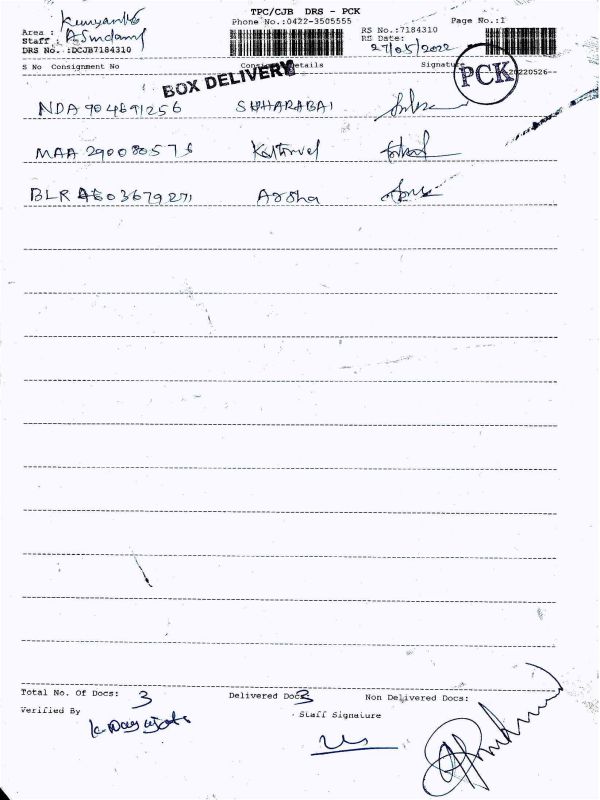 TPC/CJB DRS - PCK
Phone No.:0422-3505555
Page No.:1
Area :
Staff :
DRS No. :DCJB7184310
RS No.:7184310
RS Date:
27/05/2022
S No Consignment No Consignee Details Signature
20220526-
BOX DELIVERY
PCK
NDA 904691256
MAA 290080576
BLR 3679271 Arsha
Total No. Of Docs: 3 Delivered Docs 3 Non Delivered Docs:
Verified By
Staff Signature